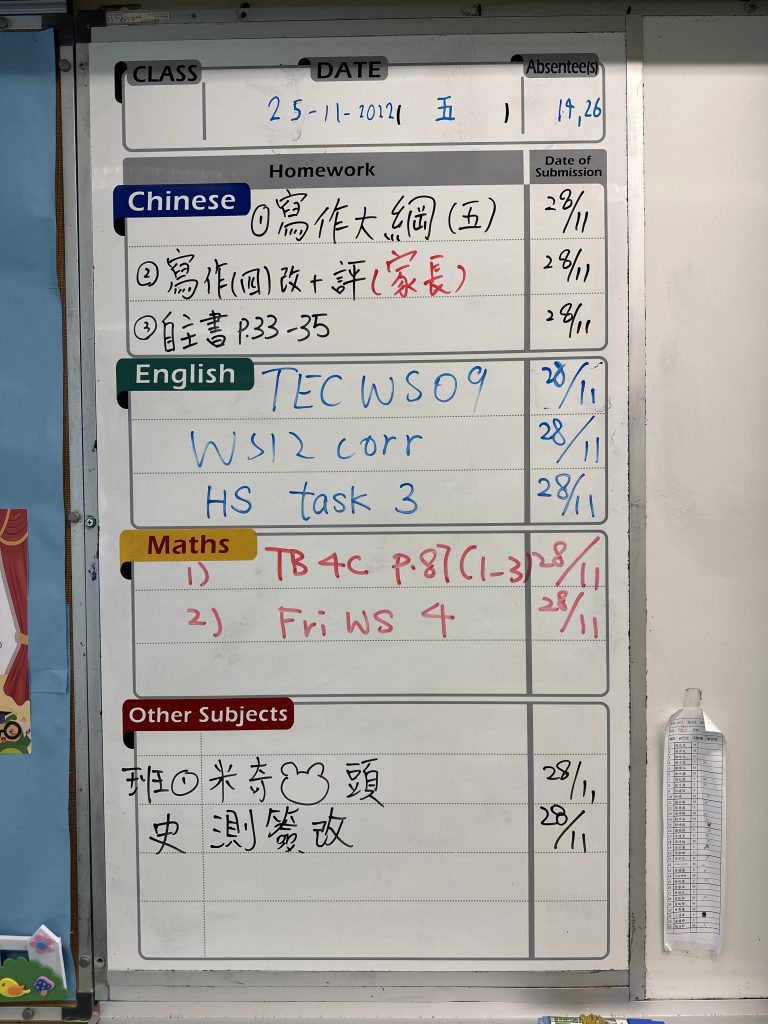 CLASS DATE Absentee(s)
25-11-2022( 五 ) 14,26
Homework Date of Submission
Chinese ①寫作大綱(五) 28/11
②寫作(四)改+評(家長) 28/11
③自主書 P.33-35 28/11
English TEC WS09 28/11
WS12 corr 28/11
HS task 3 28/11
Maths
1) TB 4C P.87(1-3) 28/11
2) Fri WS 4 28/11
Other Subjects
班① 米奇 頭 28/11
史 測簽改 28/11